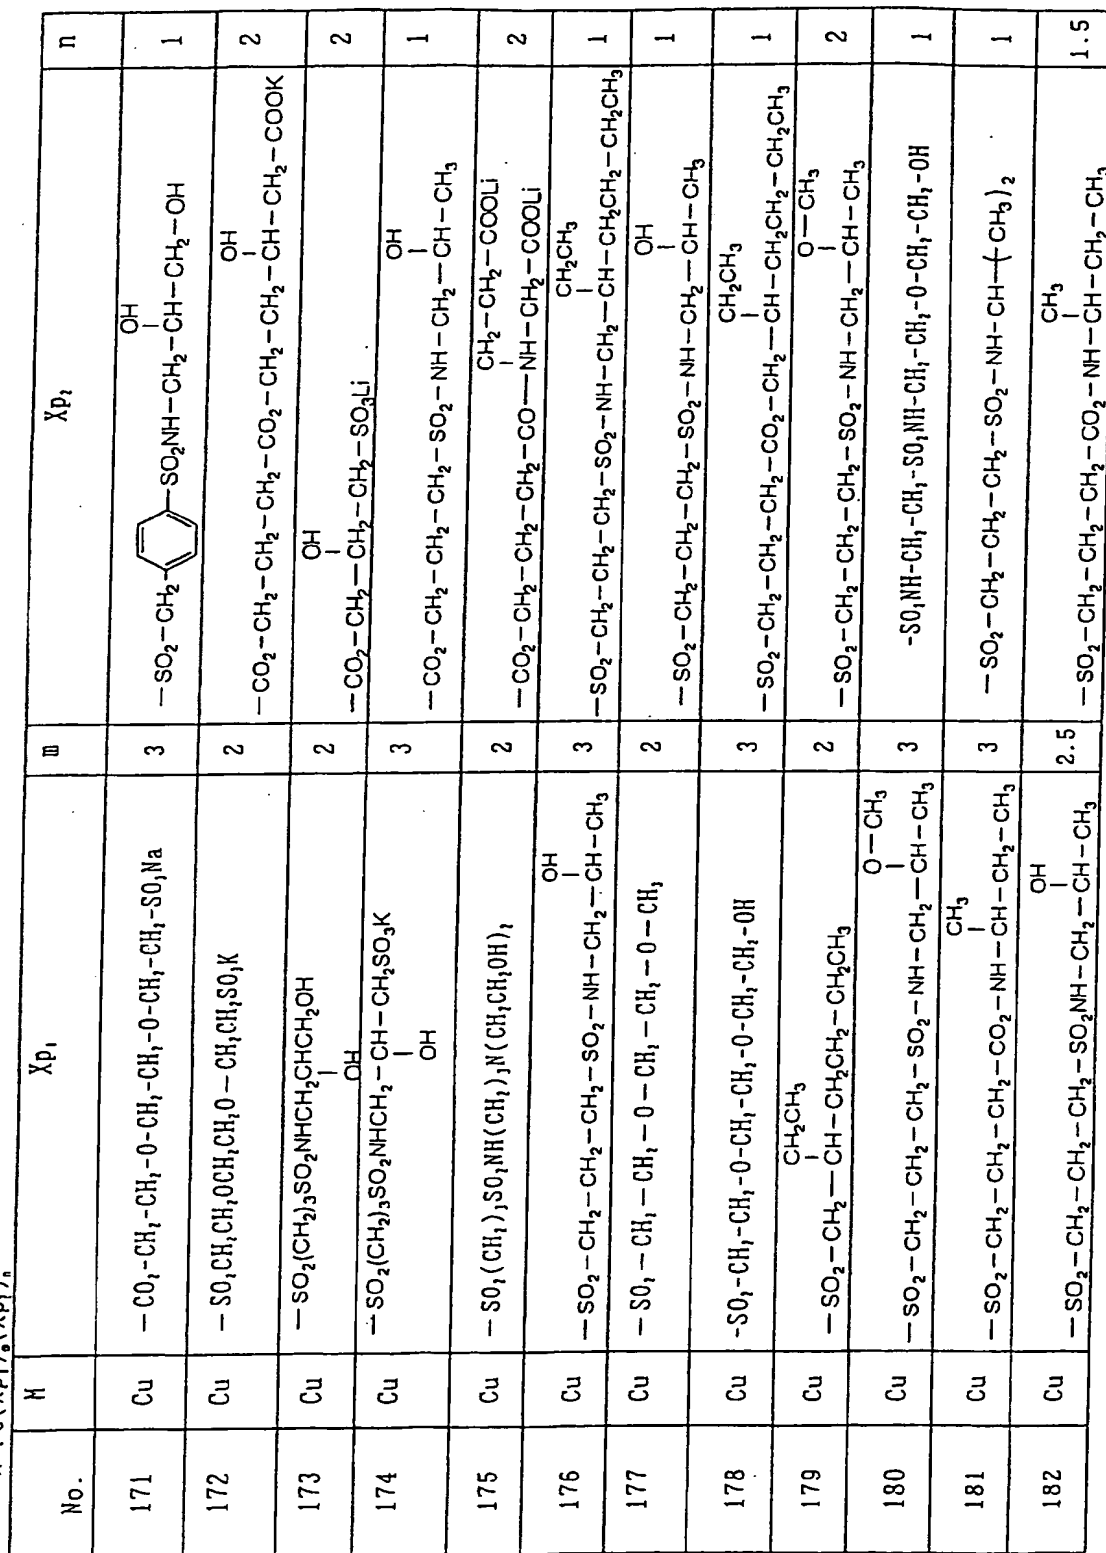 No. M Xp₁ m Xp₂ n
171 Cu —CO₂-CH₂-CH₂-O-CH₂-CH₂-O-CH₂-CH₂-SO₃Na 3 —SO₂-CH₂-⌬-SO₂NH-CH₂-CH(OH)-CH₂-OH 1
172 Cu —SO₂CH₂CH₂OCH₂CH₂O—CH₂CH₂SO₃K 2 —CO₂-CH₂-CH₂-CH₂-CO₂-CH₂-CH₂-CH(OH)-CH₂-COOK 2
173 Cu —SO₂(CH₂)₃SO₂NHCH₂CH(OH)CH₂OH 2 —CO₂-CH₂-CH(OH)-CH₂-SO₃Li 2
174 Cu —SO₂(CH₂)₃SO₂NHCH₂-CH(OH)-CH₂SO₃K 3 —CO₂-CH₂-CH₂-CH₂-SO₂-NH-CH₂-CH(OH)-CH₃ 1
175 Cu —SO₂(CH₂)₃SO₂NH(CH₂)₃N(CH₂CH₂OH)₂ 2 —CO₂-CH₂-CH₂-CH₂-CO—NH-CH(CH₂-CH₂-COOLi)-CH₂-COOLi 2
176 Cu —SO₂-CH₂-CH₂-CH₂-SO₂-NH-CH₂-CH(OH)-CH₃ 3 —SO₂-CH₂-CH₂-CH₂-SO₂-NH-CH₂-CH(CH₂CH₃)-CH₂CH₂-CH₂CH₃ 1
177 Cu —SO₂—CH₂—CH₂—O—CH₂—CH₂—O—CH₃ 2 —SO₂-CH₂-CH₂-CH₂-SO₂-NH-CH₂-CH(OH)-CH₃ 1
178 Cu -SO₂-CH₂-CH₂-O-CH₂-CH₂-O-CH₂-CH₂-OH 3 —SO₂-CH₂-CH₂-CH₂-CO₂-CH₂-CH(CH₂CH₃)-CH₂CH₂-CH₂CH₃ 1
179 Cu —SO₂-CH₂-CH(CH₂CH₃)-CH₂CH₂-CH₂CH₃ 2 —SO₂-CH₂-CH₂-CH₂-SO₂-NH-CH₂-CH(O-CH₃)-CH₃ 2
180 Cu —SO₂-CH₂-CH₂-CH₂-SO₂-NH-CH₂-CH(O-CH₃)-CH₃ 3 -SO₂NH-CH₂-CH₂-SO₂NH-CH₂-CH₂-O-CH₂-CH₂-OH 1
181 Cu —SO₂-CH₂-CH₂-CH₂-CO₂-NH-CH(CH₃)-CH₂-CH₃ 3 —SO₂-CH₂-CH₂-CH₂-SO₂-NH-CH-(CH₃)₂ 1
182 Cu —SO₂-CH₂-CH₂-CH₂-SO₂NH-CH₂-CH(OH)-CH₃ 2.5 —SO₂-CH₂-CH₂-CH₂-CO₂-NH-CH(CH₃)-CH₂-CH₃ 1.5